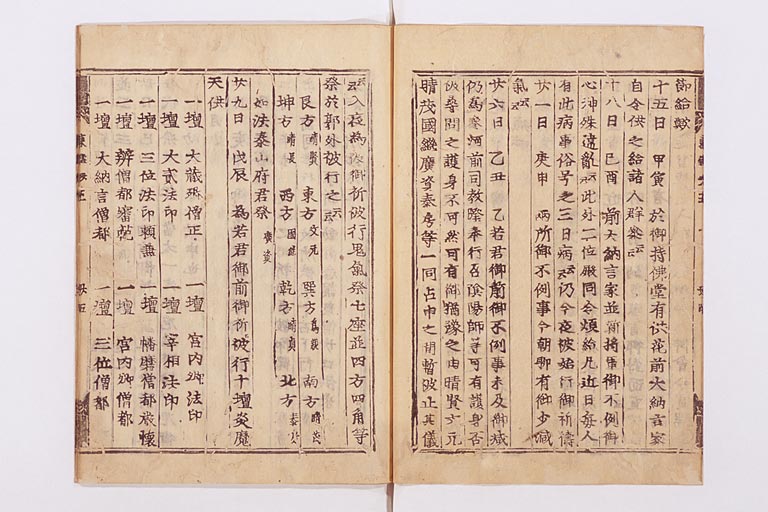 節給歟
十五日 甲寅 於御持佛堂有供花前大納言家
自令供之給諸人群參云云
十八日 己酉 前大納言家並新將軍御不例御
心神殊違亂云云此外二位殿同令煩給凡近日每人
有此病事俗号之三日病云云仍今夜被始行御祈禱
廿一日 庚申 兩所御不例事今朝聊有御少減
氣云云
廿六日 乙丑 乙若君御前御不例事未及御減
仍為參河前司教隆奉行召陰陽師等可有護身否
被尋問之護身不可然可有御猶豫之由晴賢文元
晴茂國繼廣資泰房等一同占申之間暫被止其儀
云云入夜為彼御祈被行鬼氣祭七座並四方四角等
祭於郭外被行之云云
艮方晴賢 東方文元 巽方為親 南方晴茂
坤方晴長 西方國繼 乾方晴貞 北方泰房
如法泰山府君祭 廣資
廿九日 戊辰 為若君御前御祈被行十壇炎魔
天供
一壇 大藏卿僧正 一壇 宮内卿法印
一壇 大貳法印 一壇 宰相法印
一壇 三位法印賴兼 一壇 幡磨僧都嚴懷
一壇 辨僧都審範 一壇 宮内卿僧都
一壇 大納言僧都 一壇 三位僧都